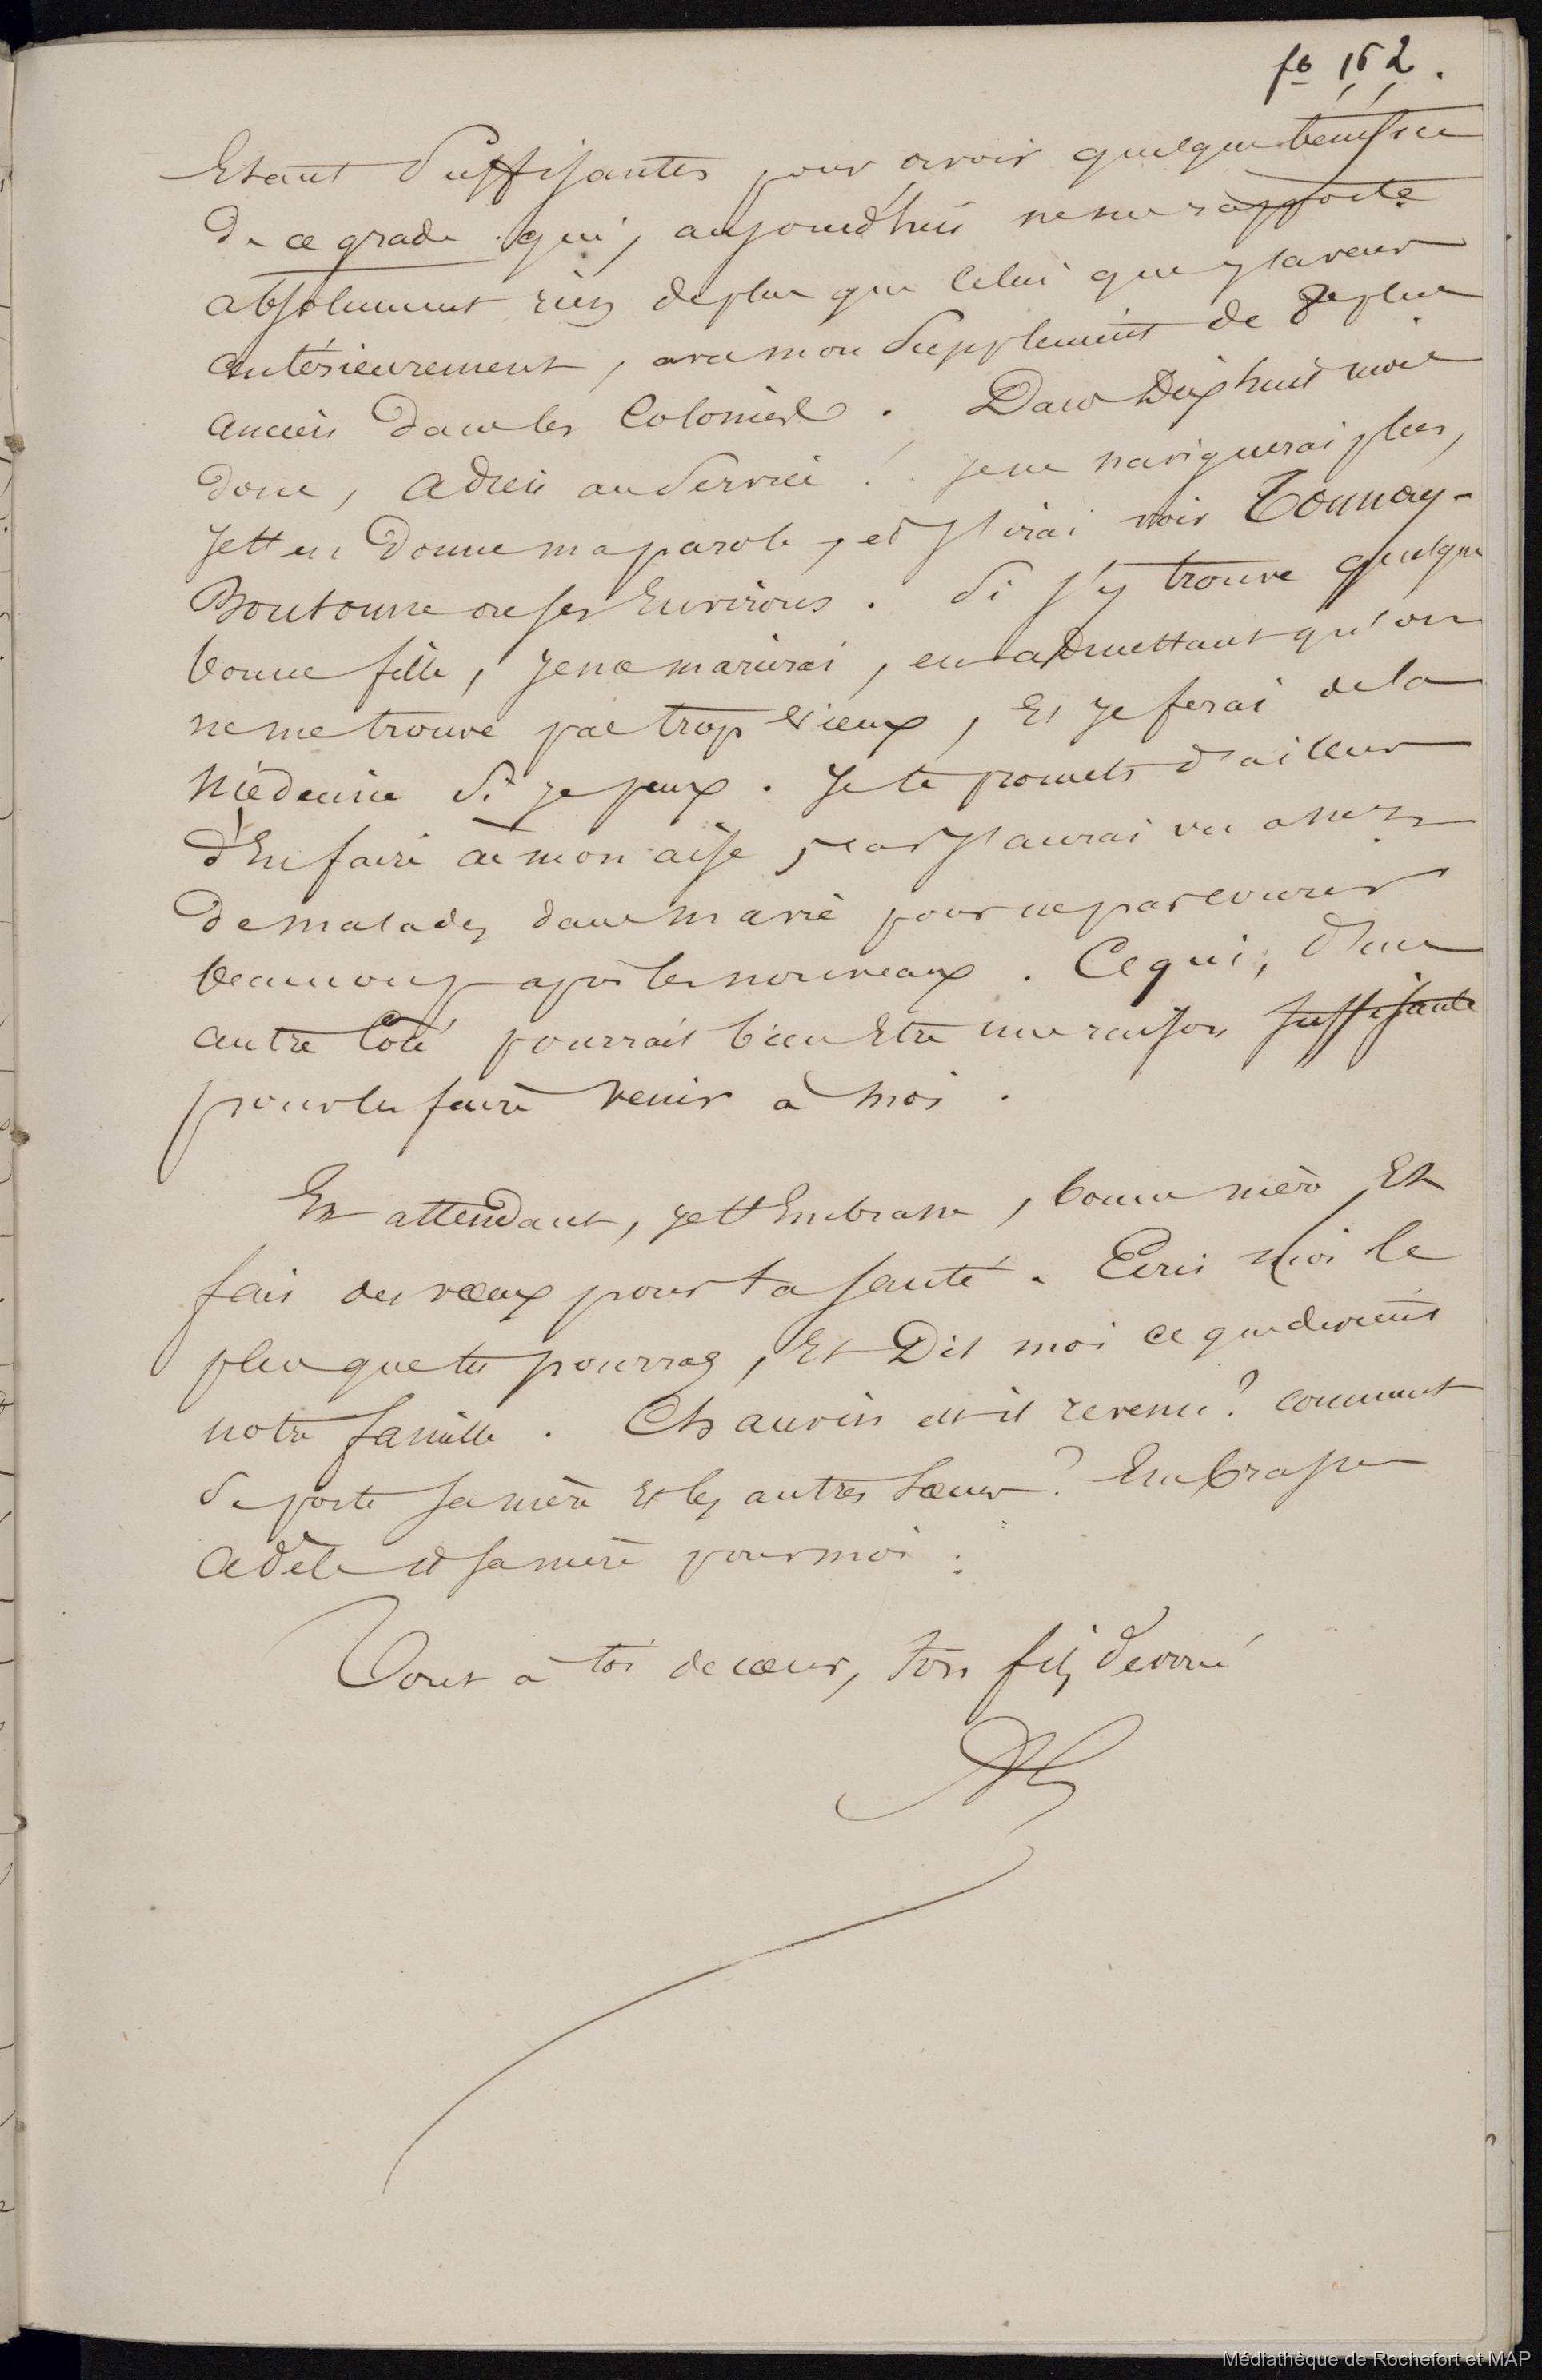 fo 162.
Etant Suffisantes pour avoir quelque bénéfice
De ce grade qui, aujourd'hui ne me rapporte
absolument rien de plus que celui que j'avais
antérieurement, avec mon Supplément de Deplus
ancien Dans les Colonies. Dans Dix huit mois
Donc, adieu au Service! Je ne naviguerai plus,
Je t'en Donne ma parole, et j'irai voir Tonnay-
Boutonne ou ses Environs. Si j'y trouve quelque
bonne fille, je me marierai, en admettant qu'on
ne me trouve pas trop vieux, Et je ferai de la
Médecine Si je peux. Je te promets d'ailleurs
d'En faire à mon aise, car j'aurai vu assez
De malades dans ma vie pour ne pas courir
beaucoup après les nouveaux. Ce qui, d'un
autre Côté pourrait bien Etre une raison suffisante
pour les faire venir à moi.
En attendant, je t'Embrasse, bonne mère, Et
fais des vœux pour ta santé. Ecris moi le
plus que tu pourras, Et Dis moi ce que devient
notre famille. Chauvin est il revenu? comment
Se porte sa mère Et les autres Sœurs? Embrasse
Adèle et sa mère pour moi.
Tout à toi de cœur, ton fils dévoué
Médiathèque de Rochefort et MAP